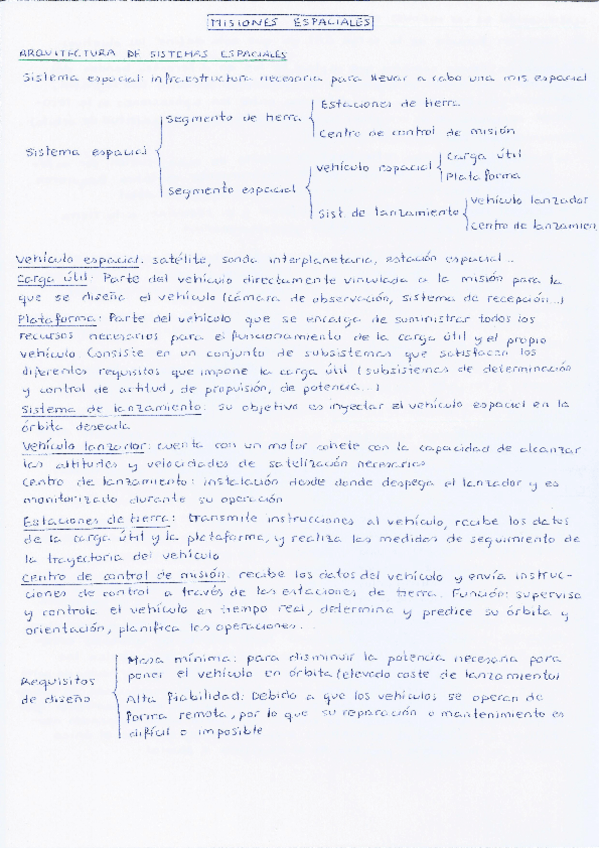 MISIONES ESPACIALES
ARQUITECTURA DE SISTEMAS ESPACIALES
Sistema espacial: infraestructura necesaria para llevar a cabo una mis espacial
Sistema espacial
Segmento de tierra
Estaciones de tierra
Centro de control de misión
Segmento espacial
Vehículo espacial
Carga útil
Plataforma
Sist. de lanzamiento
Vehículo lanzador
Centro de lanzamien
Vehículo espacial: satélite, sonda interplanetaria, estación espacial...
Carga útil: Parte del vehículo directamente vinculada a la misión para la
que se diseña el vehículo (cámara de observación, sistema de recepción...)
Plataforma: Parte del vehículo que se encarga de suministrar todos los
recursos necesarios para el funcionamiento de la carga útil y el propio
vehículo Consiste en un conjunto de subsistemas que satisfacen los
diferentes requisitos que impone la carga útil (subsistemas de determinación
y control de actitud, de propulsión, de potencia...)
Sistema de lanzamiento: su objetivo es inyectar el vehículo espacial en la
órbita deseada
Vehículo lanzador: cuenta con un motor cohete con la capacidad de alcanzar
las altitudes y velocidades de satelización necesarias
Centro de lanzamiento: instalación desde donde despega el lanzador y es
monitorizado durante su operación
Estaciones de tierra: transmite instrucciones al vehículo, recibe los datos
de la carga útil y la plataforma, y realiza las medidas de seguimiento de
la trayectoria del vehículo
Centro de control de misión: recibe los datos del vehículo y envía instruc-
ciones de control a través de las estaciones de tierra. Función: supervisa
y controla el vehículo en tiempo real, determina y predice su órbita y
orientación, planifica las operaciones...
Requisitos
de diseño
Masa mínima: para disminuir la potencia necesaria para
poner el vehículo en órbita (elevado coste de lanzamiento)
Alta fiabilidad: Debido a que los vehículos se operan de
forma remota, por lo que su reparación o mantenimiento es
difícil o imposible